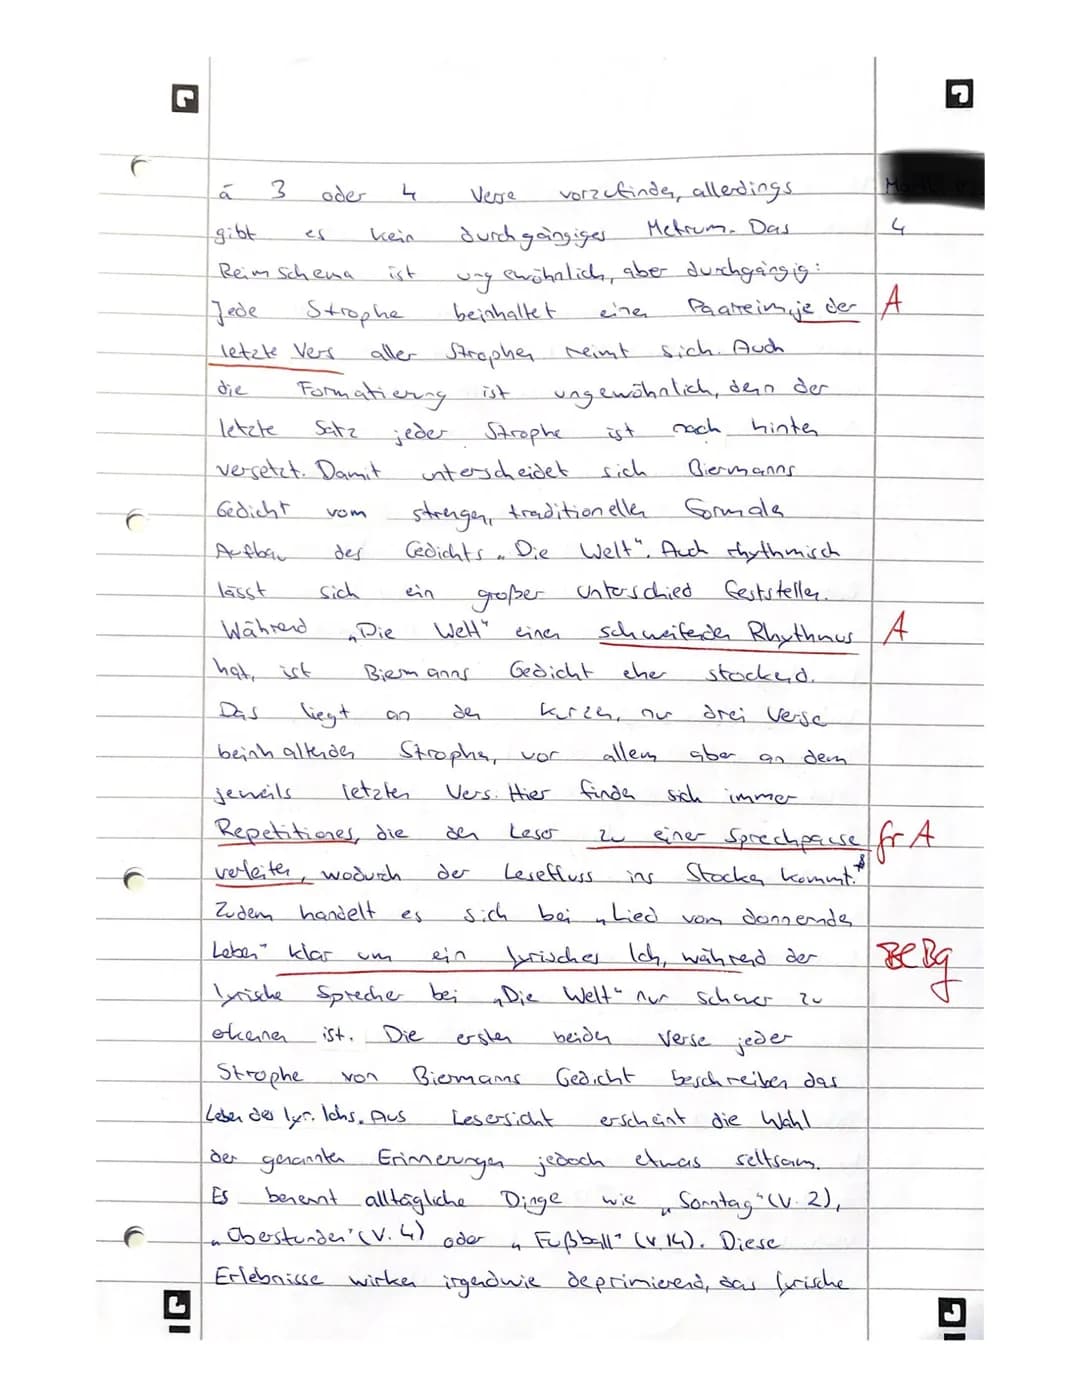 à 3 oder 4 Verse vorzufinden, allerdings
4
gibt es kein durchgängiges Metrum. Das
Reimschema ist ungewöhnlich, aber durchgängig:
Jede Strophe beinhaltet einen Paarreim, je der A
letzte Vers aller Strophen reimt sich. Auch
die Formatierung ist ungewöhnlich, denn der
letzte Satz jeder Strophe ist nach hinten
versetzt. Damit unterscheidet sich Biermanns
Gedicht vom strengen, traditionellen formalen
Aufbau des Gedichts „Die Welt". Auch rhythmisch
lässt sich ein großer Unterschied feststellen.
Während „Die Welt" einen schweifenden Rhythmus A
hat, ist Biermanns Gedicht eher stockend.
Das liegt an den kurzen, nur drei Verse
beinhaltenden Strophen, vor allem aber an dem
jeweils letzten Vers. Hier finden sich immer
Repetitiones, die den Leser zu einer Sprechpause fr A
verleiten, wodurch der Lesefluss ins Stocken kommt.*
Zudem handelt es sich bei „Lied vom donnernden
Leben" klar um ein lyrisches Ich, während der Be Bg
lyrische Sprecher bei „Die Welt" nur schwer zu
erkennen ist. Die ersten beiden Verse jeder
Strophe von Biermanns Gedicht beschreiben das
Leben des lyr. Ichs. Aus Lesersicht erscheint die Wahl
der genannten Erinnerungen jedoch etwas seltsam.
Es benennt alltägliche Dinge wie „Sonntag" (V. 2),
„Überstunden" (V. 4) oder „Fußball" (V. 14). Diese
Erlebnisse wirken irgendwie deprimierend, das lyrische